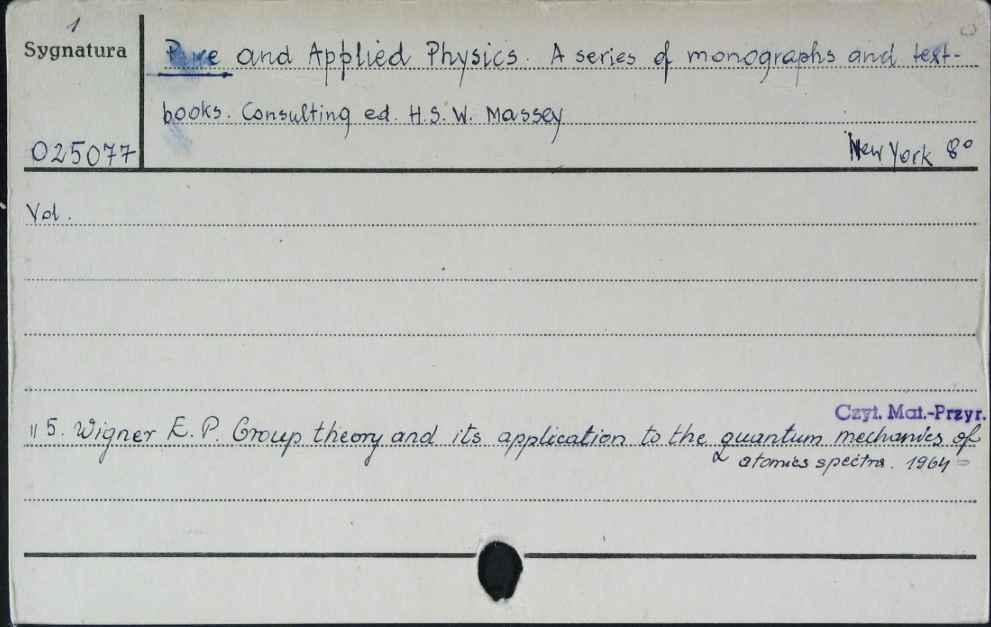 1
Sygnatura
Pure and Applied Physics. A series of monographs and text-
books. Consulting ed. H.S.W. Massey
025077
New York 8°
Vol.
Czyt. Mat.-Przyr.
" 5. Wigner E.P. Group theory and its application to the quantum mechanics of
atomics spectra. 1964